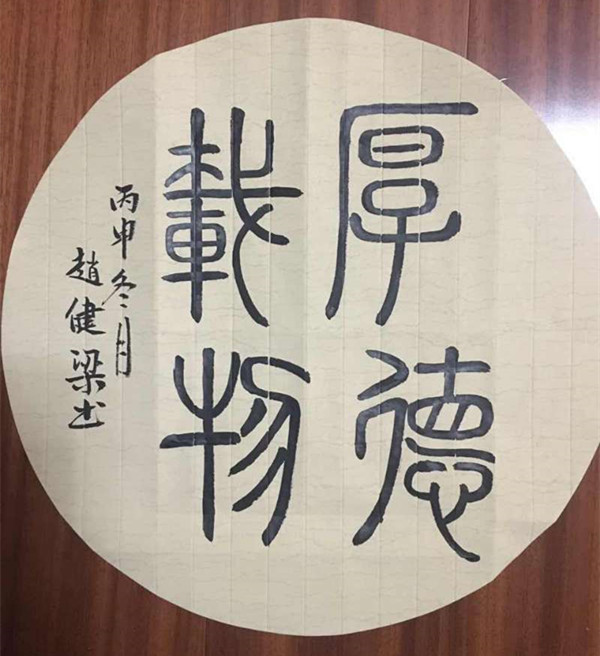 厚德
載物
丙申冬月
趙健梁书